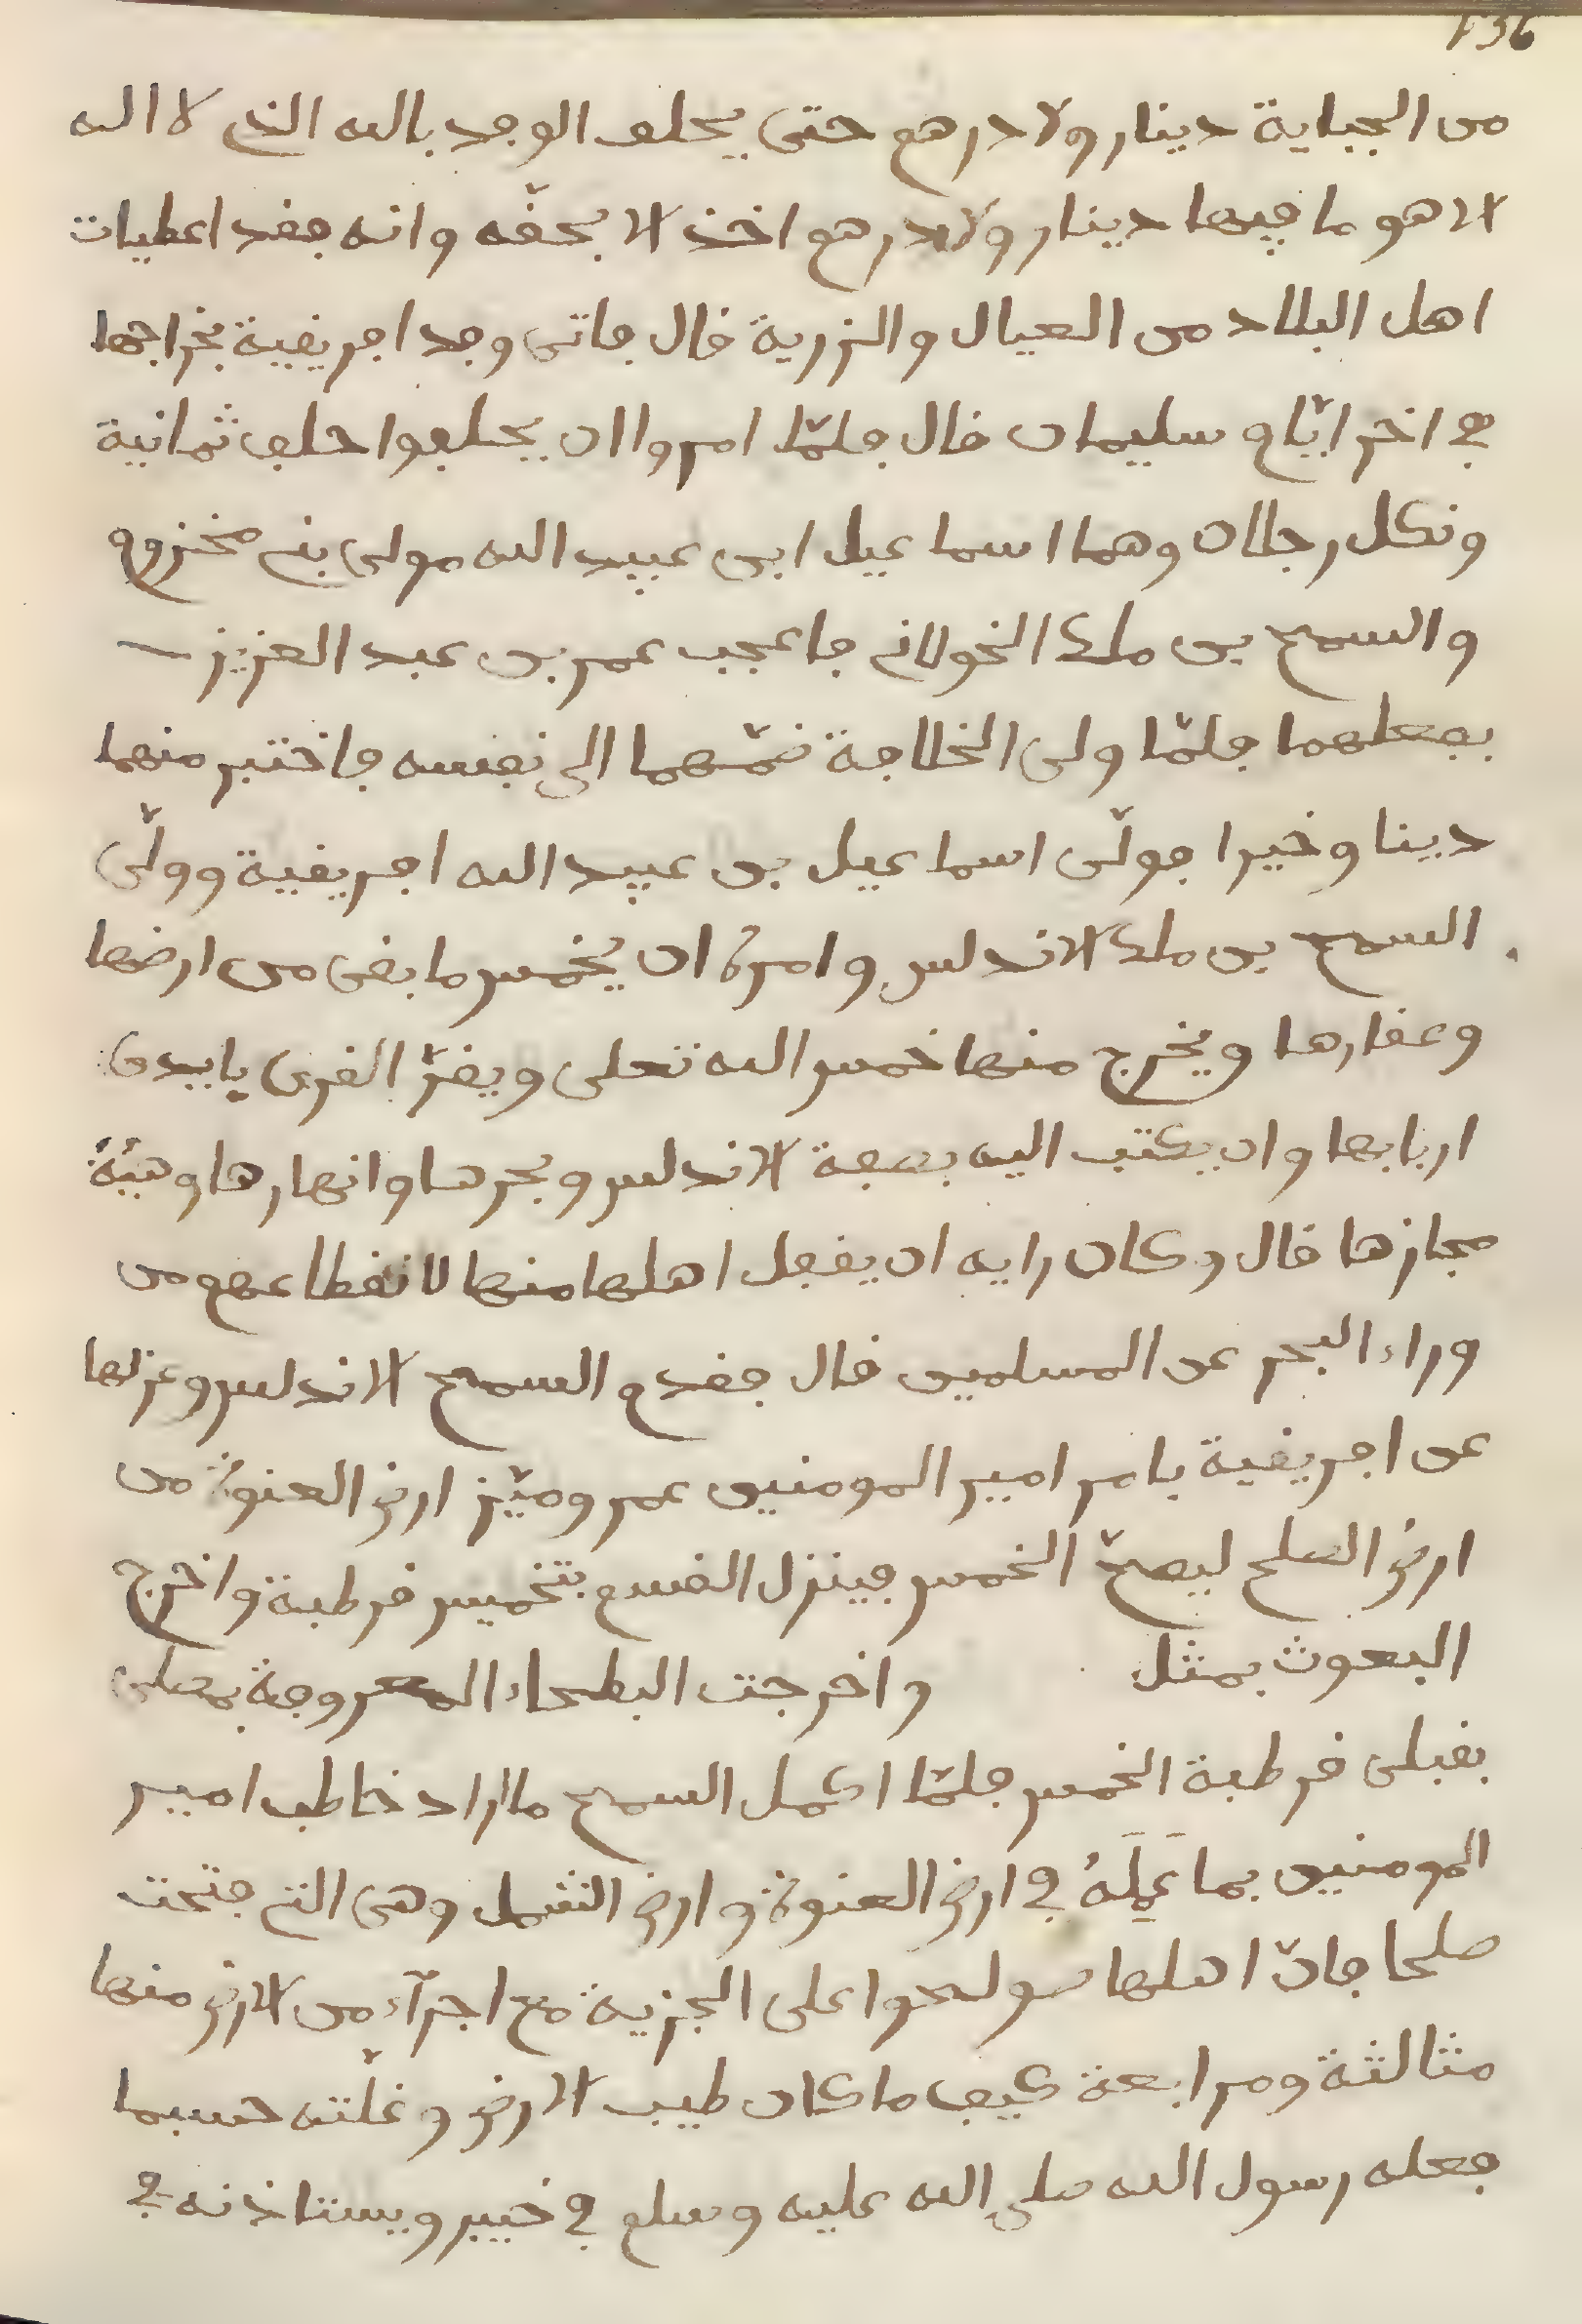 من الجباية دينار ولا درهم حتى يحلف الوجد بالله الذي لا اله
الا هو ما فيها دينار ولا درهم اخذ الا بحقّه وانه بفد اعطيات
اهل البلاد من العيال والزرية قال فاتى وجد افريقية بخراجها
في اخر ايّام سليمان قال فلمّا امروا ان يحلفوا حلف ثمانية
ونكل رجلان وهما اسماعيل ابن عبيد الله مولى بني مخزوم
والسمح بن ملك الخولاني فاعجب عمر بن عبد العزيز
بفعلهما فلمّا ولى الخلافة ضمّهما الى نفسه فاختبر منهما
دينا وخيرا فولّى اسماعيل بن عبيد الله افريقية وولّى
السمح بن ملك الاندلس وامره ان يخمس ما بقى من ارضها
وعقارها ويخرج منها خمس الله تعلى ويقرّ القرى بايدى
اربابها وان يكتب اليه بصفة الاندلس وبحرها وانهارها وهيئة
مجازها قال وكان رايه ان يفعل اهلها منها لانقطاعهم من
وراء البحر عن المسلمين قال فقدم السمح الاندلس وعزلها
عن افريقية بامر امير المومنين عمر وميّز ارض العنوة من
ارض الصلح ليصحّ الخمس فينزل القسم بتخميس قرطبة واخرج
البعوث بمثل واخرجت البطحاء المعروفة بمصلى
بقبلى قرطبة الخمس فلمّا اكمل السمح ما اراد خاطب امير
المومنين بما عَمِلَهُ في ارض العنوة وارض الشمل وهى التي فتحت
صلحا فانّ اهلها صولحوا على الجزية مع اجزآء من الارض منها
مثالثة ومرابعة كيف ما كان طيب الارض وغلّته حسبما
فعله رسول الله صلى الله عليه وسلم في خيبر ويستاذنه في